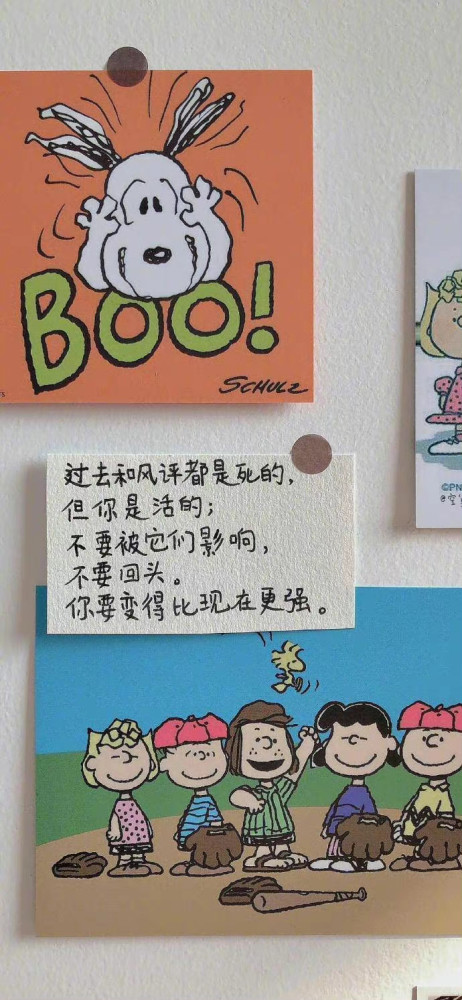 BOO!
SCHULZ
过去和风评都是死的，
但你是活的；
不要被它们影响，
不要回头。
你要变得比现在更强。
©PN